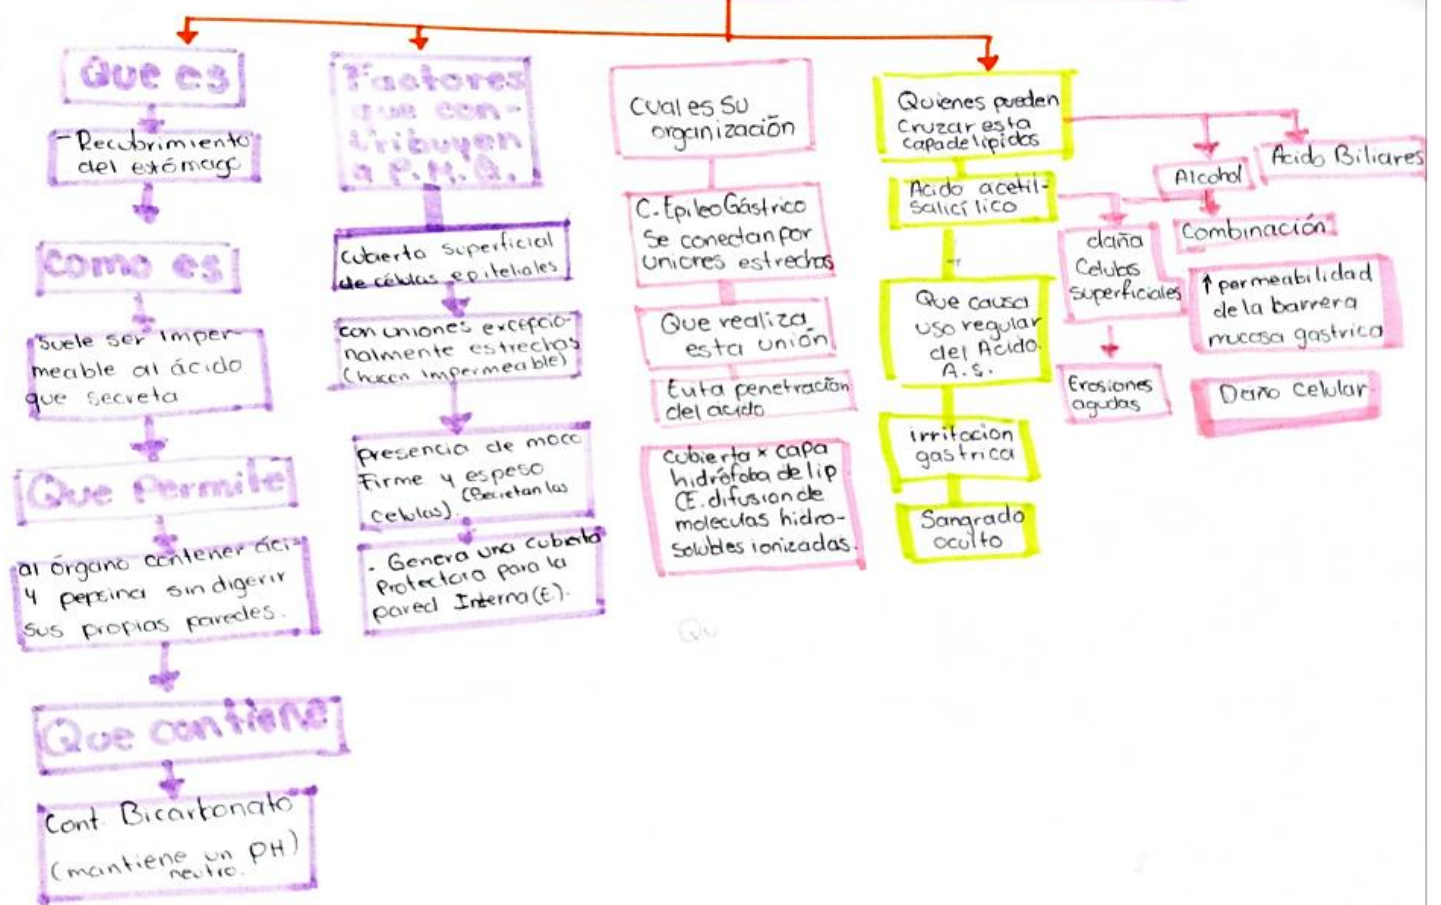 Que es
- Recubrimiento
del estómago
Como es
suele ser imper-
meable al ácido
que secreta
Que Permite
al órgano contener áci-
y pepsina sin digerir
sus propias paredes.
Que contiene
Cont. Bicarbonato
(mantiene un PH)
neutro.
Factores
que con-
tribuyen
a P.M.G.
Cubierta superficial
de células epiteliales
con uniones excepcio-
nalmente estrechas
(hacen impermeable)
presencia de moco
Firme y espeso
(Secretan las
celulas).
- Genera una cubierta
Protectora para la
pared Interna (E).
Cual es su
organización
C. Epileo Gástrico
Se conectan por
uniones estrechas
Que realiza
esta unión
Evita penetración
del ácido
Cubierta x capa
hidrófoba de lip
(E. difusion de
moleculas hidro-
solubles ionizadas.
Qu
Quienes pueden
Cruzar esta
capa de lipidos
Acido acetil-
Salicílico
Que causa
uso regular
del Acido.
A.S.
irritacion
gastrica
Sangrado
oculto
Alcohol
Acido Biliares
daña
Celulas
superficiales
Erosiones
agudas
Combinación
↑ permeabilidad
de la barrera
mucosa gastrica
Daño Celular